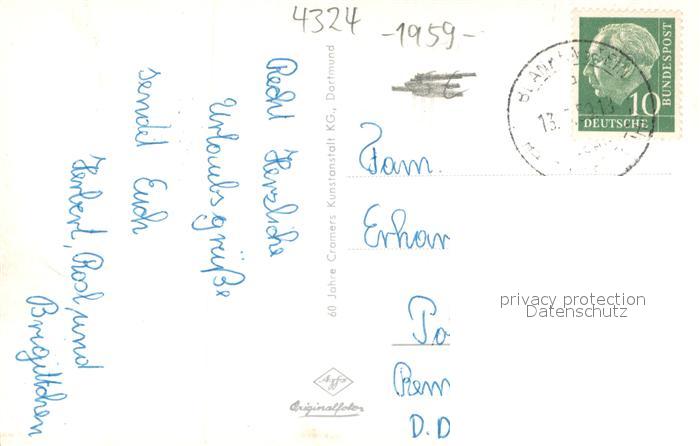 4324
-1959-
Recht Herzliche
Urlaubsgrüße
sendet Euch
Herbert, Rosl, und
Brigittchen
60 Jahre Cramers Kunstanstalt KG., Dortmund
Agfa
Originalfoto
10
DEUTSCHE
BUNDESPOST
13.
Fam.
Erhar
Po
Rem
D.D
privacy protection
Datenschutz